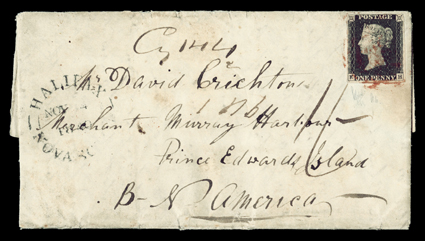 POSTAGE
ONE PENNY
HALIFAX
NOVA SCO
Mr David Crichton
Merchant Murray Harbour
Prince Edwards Island
B-N America